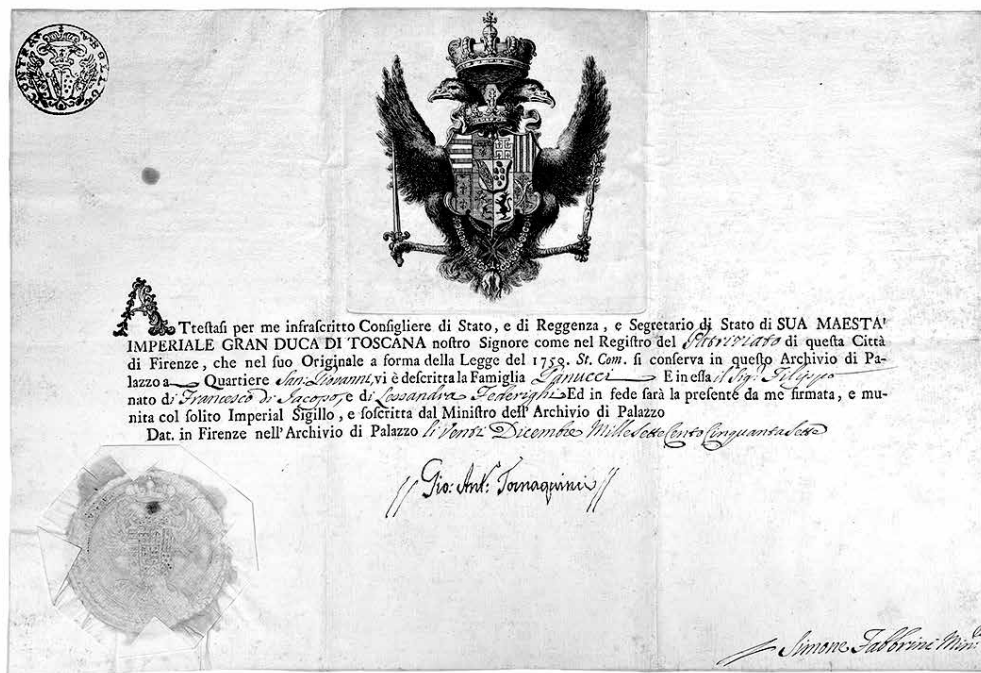 CONTRA SELLO
ATtestasi per me infrascritto Consigliere di Stato, e di Reggenza, e Segretario di Stato di SUA MAESTA'
IMPERIALE GRAN DUCA DI TOSCANA nostro Signore come nel Registro del Patriziato di questa Città
di Firenze, che nel suo Originale a forma della Legge del 1750. St. Com. si conserva in questo Archivio di Pa-
lazzo a Quartiere San Giovanni, vi è descritta la Famiglia Panucci E in essa il Sig.r Filippo
nato di Francesco di Jacopo, e di Lessandra Federighi Ed in fede sarà la presente da me firmata, e mu-
nita col solito Imperial Sigillo, e soscritta dal Ministro dell'Archivio di Palazzo
Dat. in Firenze nell'Archivio di Palazzo li Venti Dicembre Mille Sette Cento Cinquanta Sette
Gio: Ant.o Tornaquinci
Simone Fabbrini Min.